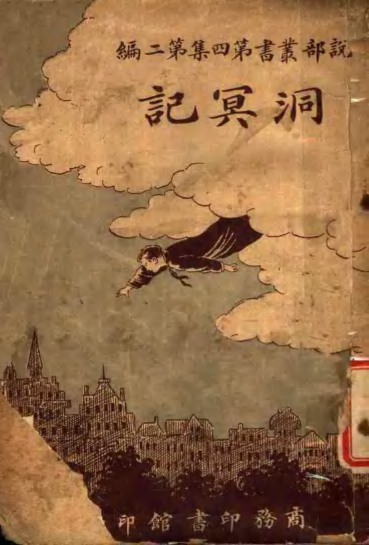 說部叢書第四集第二編
洞冥記
商務印書館印